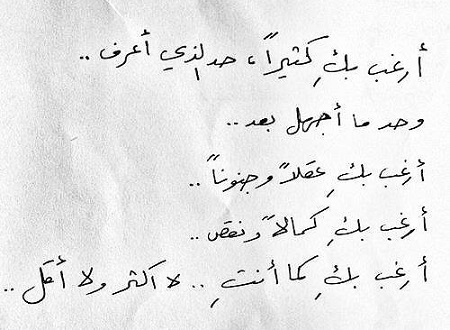 أرغب بكِ كثيراً، حد الذي أعرف ..
وحد ما أجهل بعد ..
أرغب بكِ عقلاً وجنوناً ..
أرغب بكِ كمالاً ونقص ..
أرغب بكِ كما أنتِ .. لا اكثر ولا أقل ..